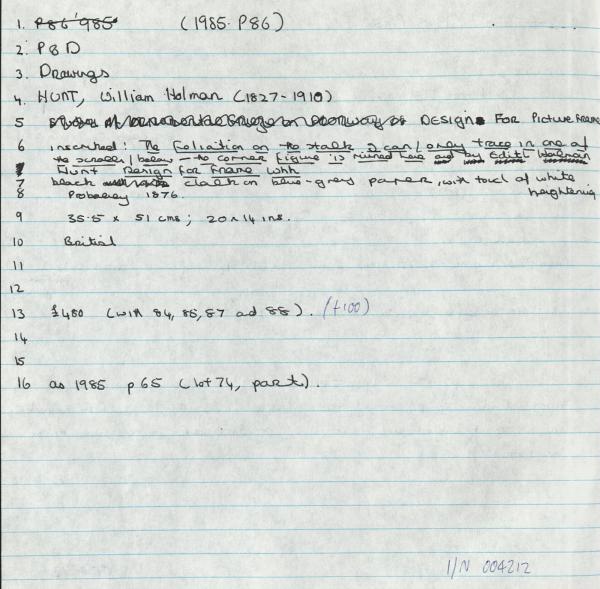 1. P86 1985 (1985. P86)
2. P & D
3. Drawings
4. HUNT, William Holman (1827-1910)
5 DESIGN FOR Picture Frame
6 inscribed: The foliation on the stalk I can / only trace in one of
the scrolls / below — the corner figure is ruined here and by Edith Holman
Hunt Design for Frame Whh
7 black chalk on blue-grey paper, with touch of white heightening
8 Probably 1876.
9 35.5 x 51 cms; 20 x 14 ins.
10 British
11
12
13 £480 (with 84, 85, 87 ad 88). (+100)
14
15
16 as 1985 p 65 (lot 74, part).
I/N 004212